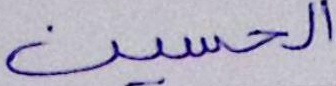 الحسين